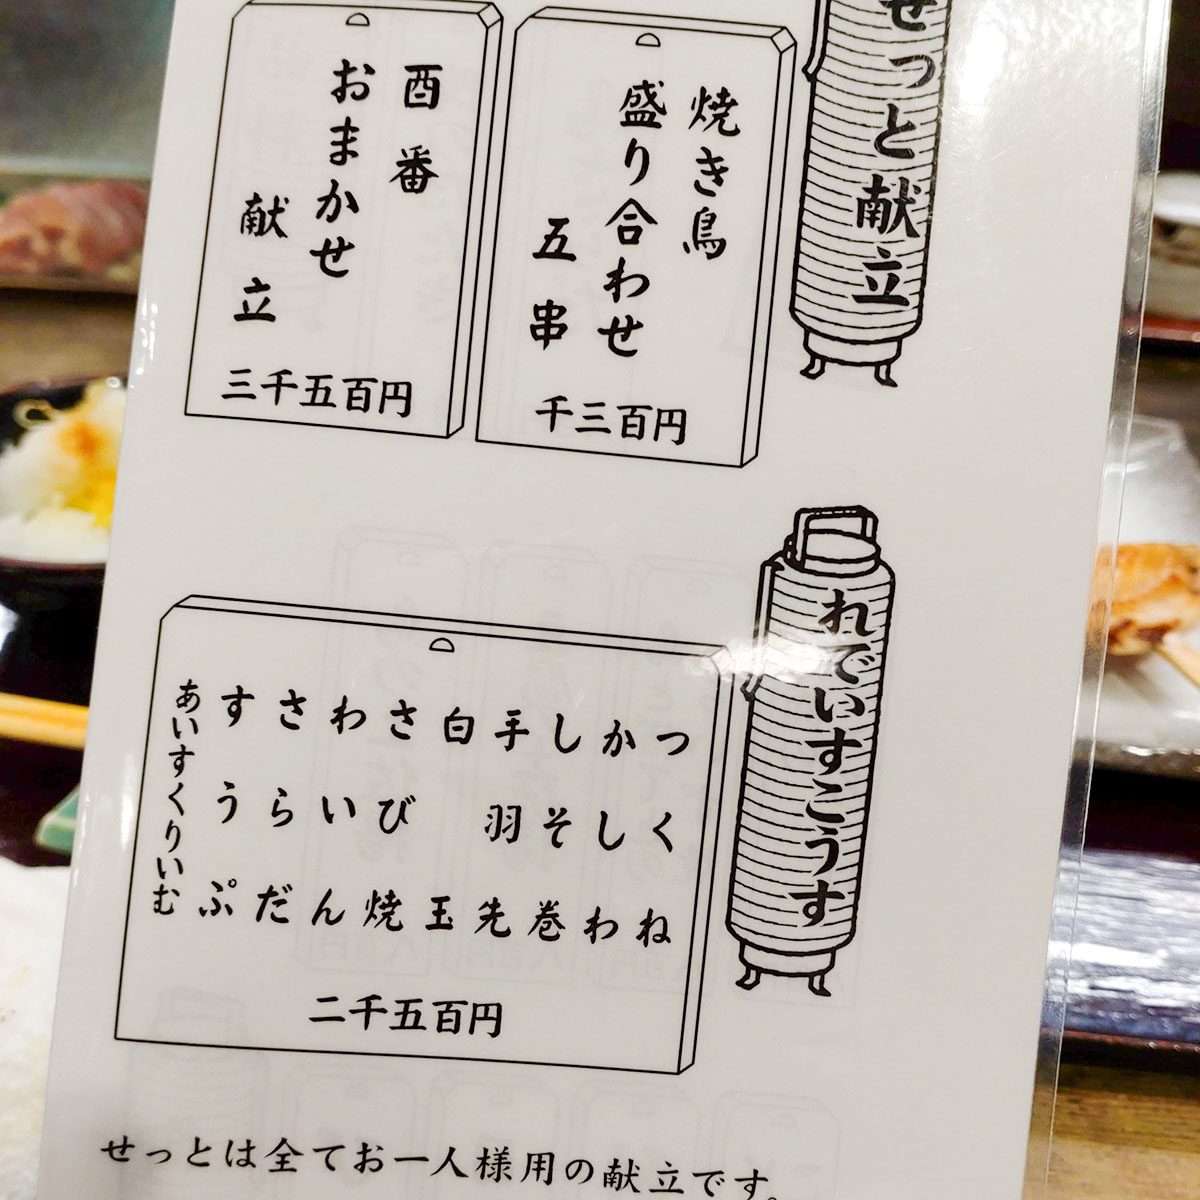 せっと献立
焼き鳥
盛り合わせ
五串
千三百円
酉番
おまかせ
献立
三千五百円
れでいすこうす
つくね
かしわ
しそ巻
手羽先
白玉
さび焼
わいん
さらだ
すうぷ
あいすくりいむ
二千五百円
せっとは全てお一人様用の献立です。